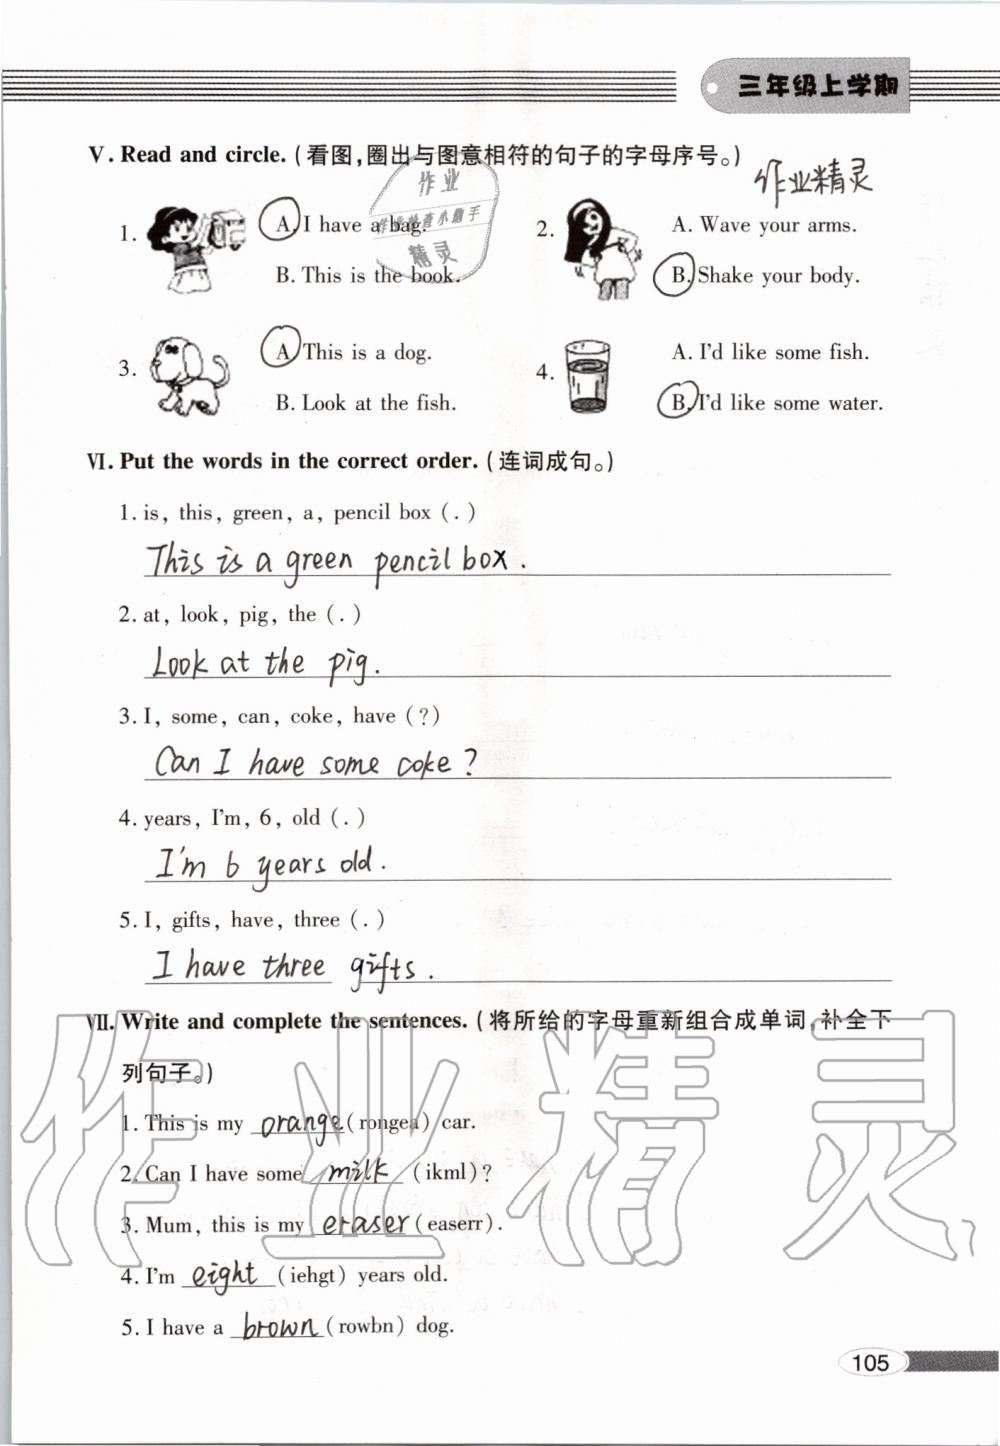 三年级上学期
Ⅴ. Read and circle. (看图,圈出与图意相符的句子的字母序号。)
作业精灵
作业
作业检查小助手
精灵
1. A. I have a bag.
B. This is the book.
2. A. Wave your arms.
B. Shake your body.
3. A. This is a dog.
B. Look at the fish.
4. A. I'd like some fish.
B. I'd like some water.
Ⅵ. Put the words in the correct order. (连词成句。)
1. is, this, green, a, pencil box (.)
This is a green pencil box.
2. at, look, pig, the (.)
Look at the pig.
3. I, some, can, coke, have (?)
Can I have some coke?
4. years, I'm, 6, old (.)
I'm 6 years old.
5. I, gifts, have, three (.)
I have three gifts.
Ⅶ. Write and complete the sentences. (将所给的字母重新组合成单词,补全下
列句子。)
1. This is my orange (rongea) car.
2. Can I have some milk (ikml)?
3. Mum, this is my eraser (easerr).
4. I'm eight (iehgt) years old.
5. I have a brown (rowbn) dog.
作业精灵
105